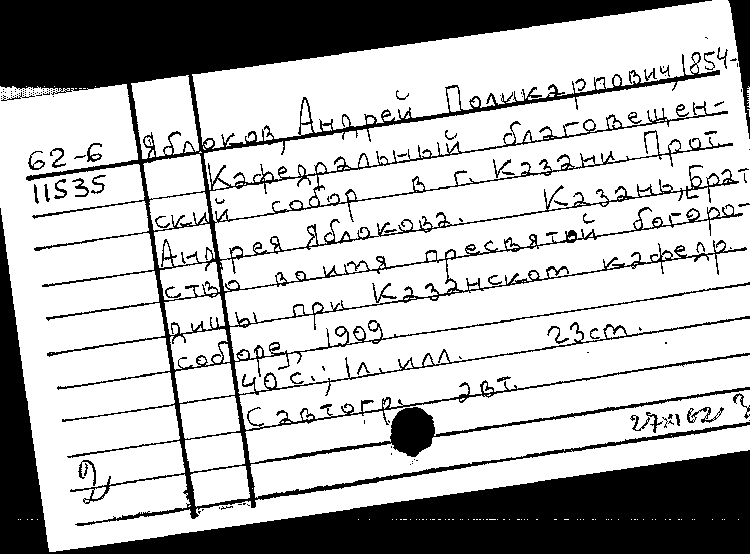 Яблоков, Андрей Поликарпович, 1854-
62-6
11535
Кафедральный благовещен-
ский собор в г. Казани. Прот.
Андрея Яблокова. Казань, Брат
ство во имя пресвятой богоро-
дицы при Казанском кафедр.
соборе, 1909.
40 с.; 1 л. илл. 23 cm.
С автогр. авт.
2